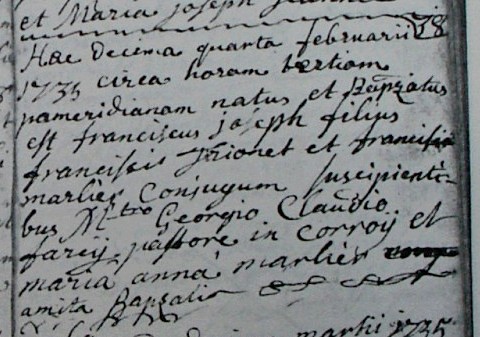 et Maria joseph
Hac Decima quarta februarii 28
1735 circa horam tertiam
pameridianam natus et Bapzatus
est franciscus joseph filius
francisci et francisia
marlier Conjugum suscipienti-
bus Mtro Georgio Claudio
farcy pastore in corroij et
maria anna marlier
amita Bapzati
martii 1735